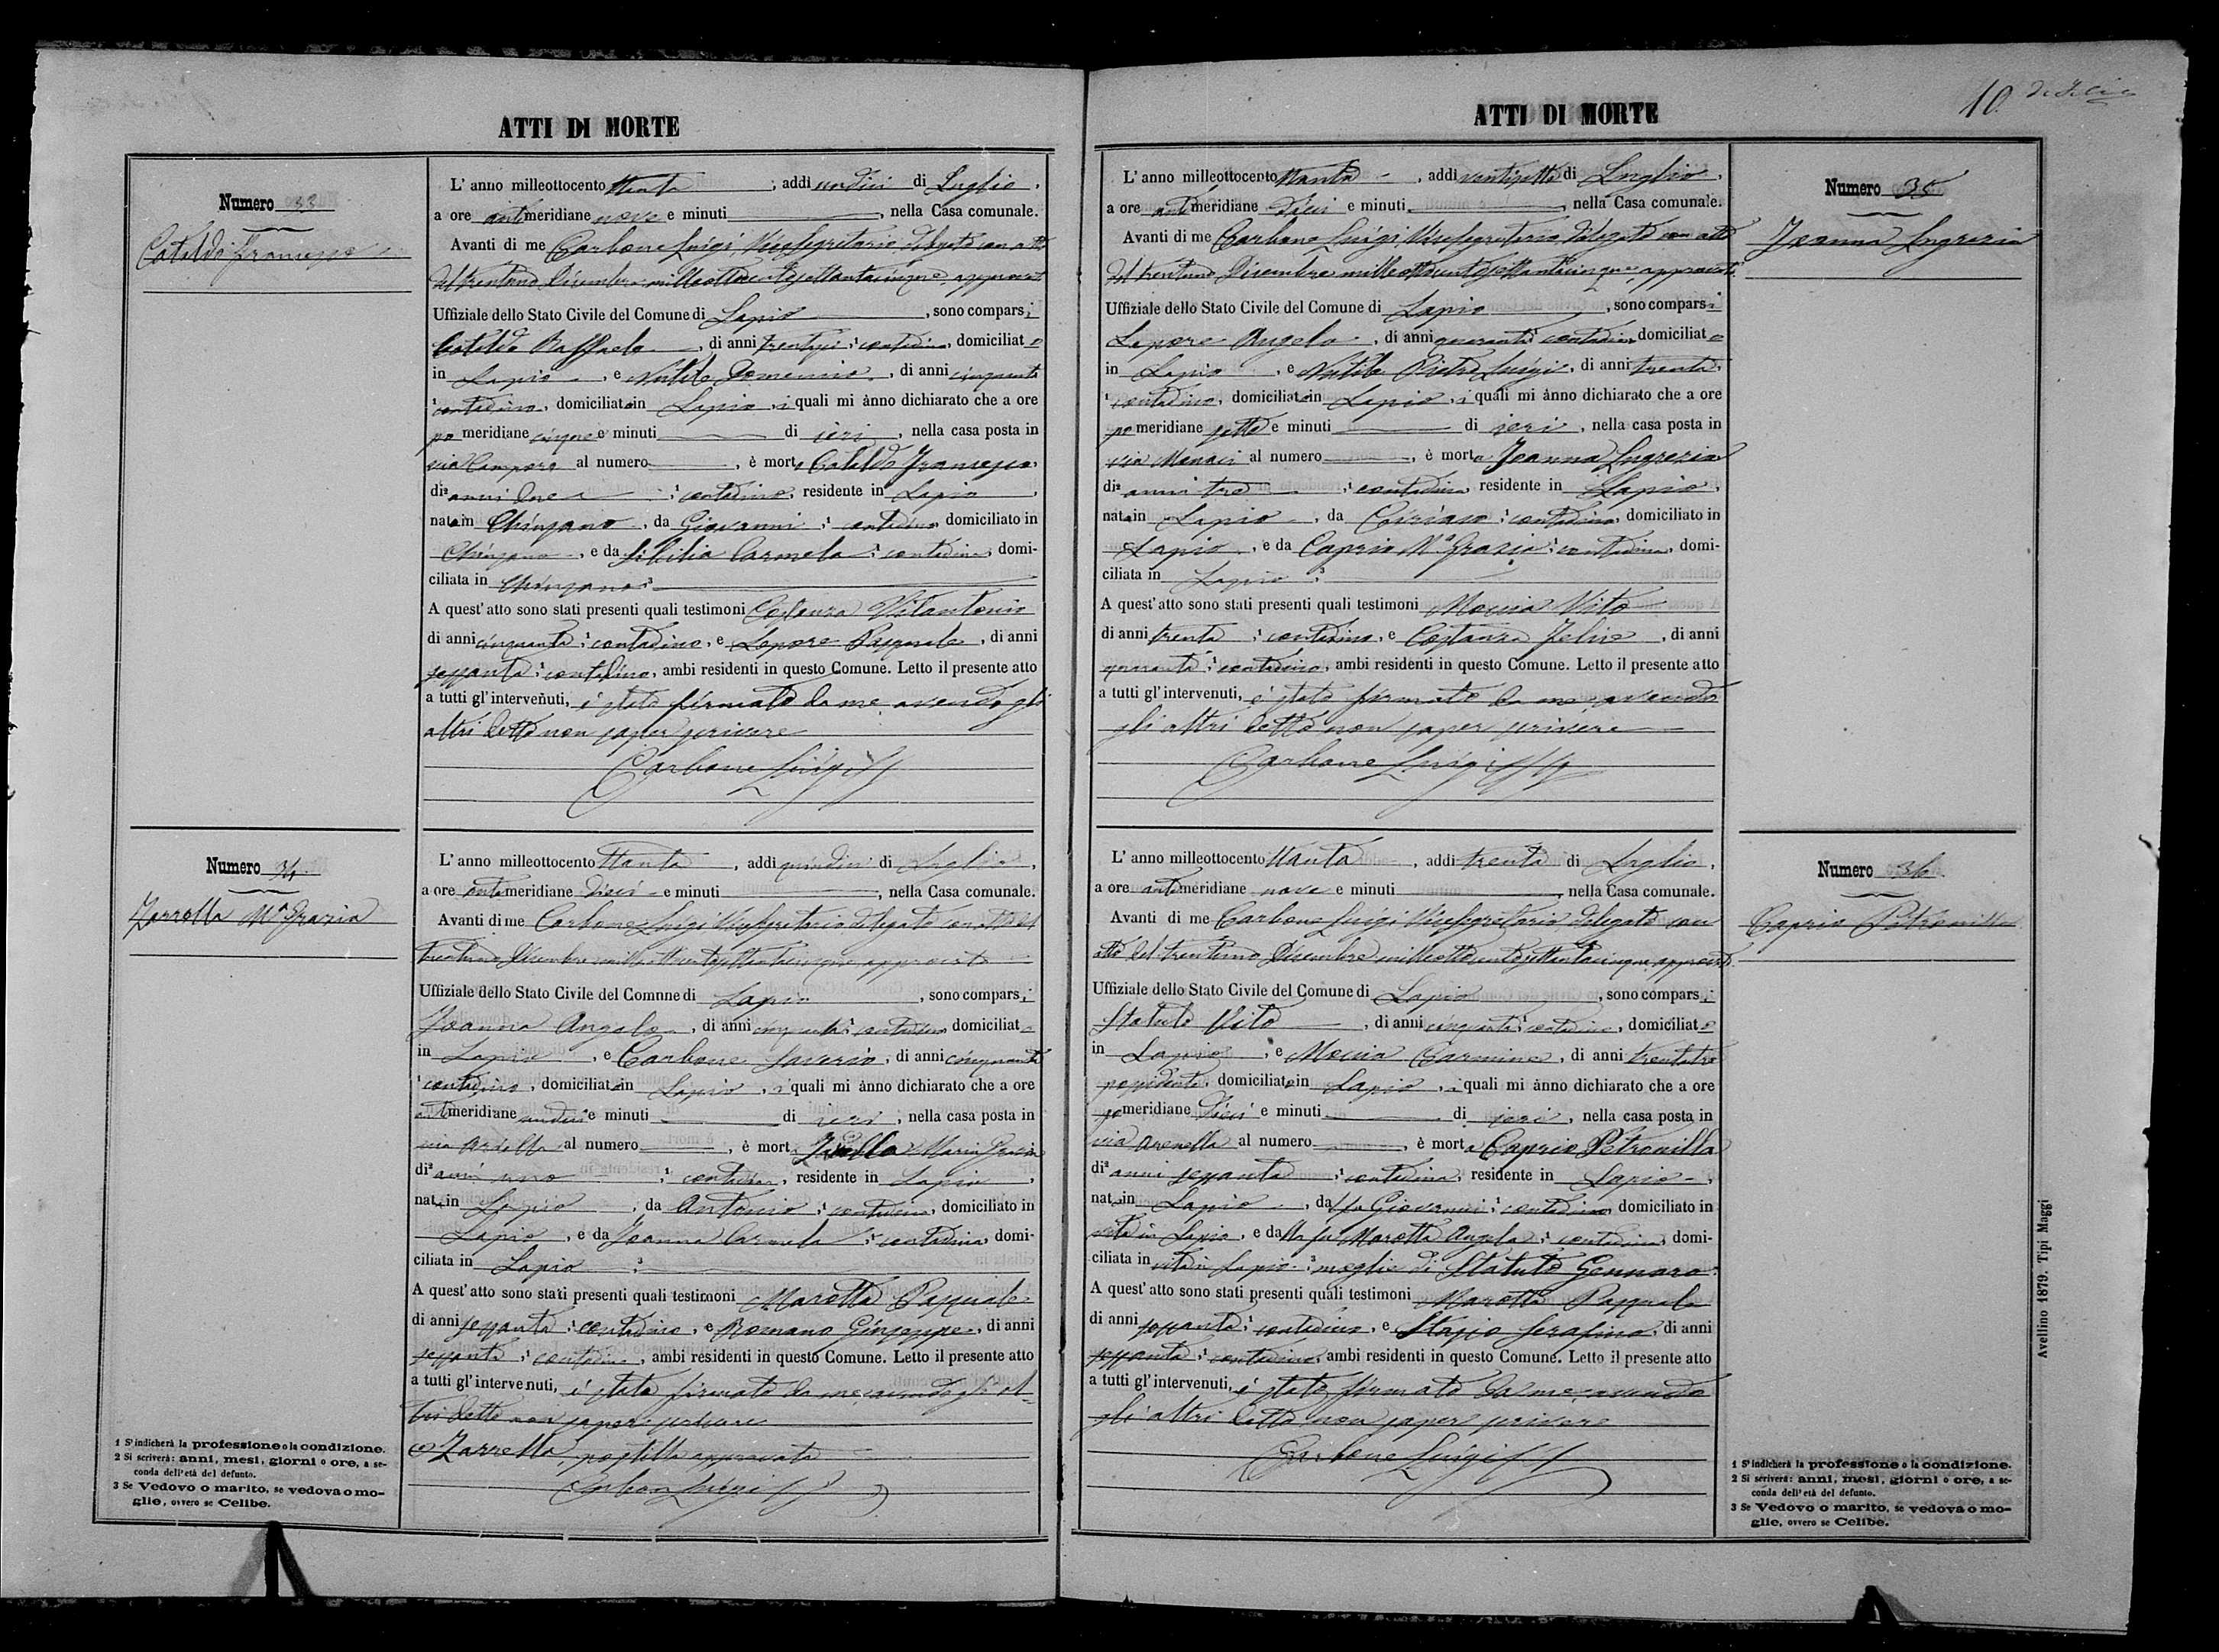 ATTI DI MORTE
Numero 33
Cataldo Francesco
L' anno milleottocento ttanta, addi undici di Luglio,
a ore antimeridiane nove e minuti, nella Casa comunale.
Avanti di me Carbone Luigi, Vicesegretario delegato con atto
del trentuno Dicembre milleottocentosettantacinque, approvato
Uffiziale dello Stato Civile del Comune di Lapio, sono comparsi
Cataldo Raffaele, di anni trentasei, contadino, domiciliato
in Lapio, e Nutile Domenico, di anni cinquanta
contadino, domiciliato in Lapio, i quali mi ànno dichiarato che a ore
po meridiane cinque e minuti di ieri, nella casa posta in
via Campore al numero, è morto Cataldo Francesco,
di anni due, contadino, residente in Lapio,
nato in Chiusano, da Giovanni, contadino, domiciliato in
Chiusano, e da Sibilia Carmela, contadina, domi-
ciliata in Chiusano
A quest' atto sono stati presenti quali testimoni Costanza Vitantonio
di anni cinquanta, contadino, e Lepore Pasquale, di anni
sessanta, contadino, ambi residenti in questo Comune. Letto il presente atto
a tutti gl' intervenuti, è stato firmato da me avendo gli
altri detto non saper scrivere
Carbone Luigi
Numero 34
Zarrella Mª Grazia
L' anno milleottocento ttanta, addi quindici di Luglio,
a ore antimeridiane dieci e minuti, nella Casa comunale.
Avanti di me Carbone Luigi Vicesegretario delegato con atto del
trentuno Dicembre milleottocentosettantacinque approvato
Uffiziale dello Stato Civile del Comnne di Lapio, sono comparsi
Joanna Angelo, di anni cinquanta, contadino domiciliato
in Lapio, e Carbone Saverio, di anni cinquanta
contadino, domiciliato in Lapio, i quali mi ànno dichiarato che a ore
antimeridiane undici e minuti di ieri, nella casa posta in
via al numero, è morta Maria Grazia
di anni uno, contadina, residente in Lapio,
nata in Lapio, da Antonio, contadino, domiciliato in
Lapio, e da Joanna Carmela, contadina, domi-
ciliata in Lapio
A quest' atto sono stati presenti quali testimoni Marotta Pasquale
di anni sessanta, contadino, e Romano Giuseppe, di anni
sessanta, contadino, ambi residenti in questo Comune. Letto il presente atto
a tutti gl' intervenuti, è stato firmato da me avendo gli al-
tri detto non saper scrivere
Zarrella, postilla approvata
Carbone Luigi
1 S' indicherà la professione o la condizione.
2 Si scriverà: anni, mesi, giorni o ore, a se-
conda dell' età del defunto.
3 Se Vedovo o marito, se vedova o mo-
glie, ovvero se Celibe.
ATTI DI MORTE
10
L' anno milleottocento ttanta, addi ventisette di Luglio,
a ore antimeridiane dieci e minuti, nella Casa comunale.
Avanti di me Carbone Luigi, Vicesegretario delegato con atto
del trentuno Dicembre milleottocentosettantacinque, approvato
Uffiziale dello Stato Civile del Comune di Lapio, sono comparsi
Lepore Angelo, di anni quaranta, contadino domiciliato
in Lapio, e Nutile Pietro Luigi, di anni trenta,
contadino, domiciliato in Lapio, i quali mi ànno dichiarato che a ore
po meridiane sette e minuti di ieri, nella casa posta in
via Monaci al numero, è morta Joanna Lugrezia
di anni tre, contadina, residente in Lapio,
nata in Lapio, da Ciriaco, contadino, domiciliato in
Lapio, e da Caprio Mª Grazia, contadina, domi-
ciliata in Lapio
A quest' atto sono stati presenti quali testimoni Moccia Vito
di anni trenta, contadino, e Costanza Felice, di anni
quaranta, contadino, ambi residenti in questo Comune. Letto il presente atto
a tutti gl' intervenuti, è stato firmato da me avendo
gli altri detto non saper scrivere
Carbone Luigi
Numero 35
Joanna Lugrezia
L' anno milleottocento ttanta, addi trenta di Luglio,
a ore antimeridiane nove e minuti, nella Casa comunale.
Avanti di me Carbone Luigi Vicesegretario delegato con
atto del trentuno Dicembre milleottocentosettantacinque, approvato
Uffiziale dello Stato Civile del Comune di Lapio, sono comparsi
Statuto Vito, di anni cinquanta, contadino, domiciliato
in Lapio, e Moccia Carmine, di anni trentatre
possidente, domiciliato in Lapio, i quali mi ànno dichiarato che a ore
po meridiane dieci e minuti di ieri, nella casa posta in
via Arenella al numero, è morta Caprio Petronilla
di anni sessanta, contadina, residente in Lapio,
nata in Lapio, dal fu Giovanni, contadino, domiciliato in
vita in Lapio, e dalla fu Marotta Angela, contadina, domi-
ciliata in vita in Lapio, moglie di Statuto Gennaro.
A quest' atto sono stati presenti quali testimoni Marotta Pasquale
di anni sessanta, contadino, e Serafino, di anni
sessanta, contadino, ambi residenti in questo Comune. Letto il presente atto
a tutti gl' intervenuti, è stato firmato da me avendo
gli altri detto non saper scrivere
Carbone Luigi
Numero 36
Caprio Petronilla
1 S' indicherà la professione o la condizione.
2 Si scriverà: anni, mesi, giorni o ore, a se-
conda dell' età del defunto.
3 Se Vedovo o marito, se vedova o mo-
glie, ovvero se Celibe.
Avellino 1879. Tipi Maggi